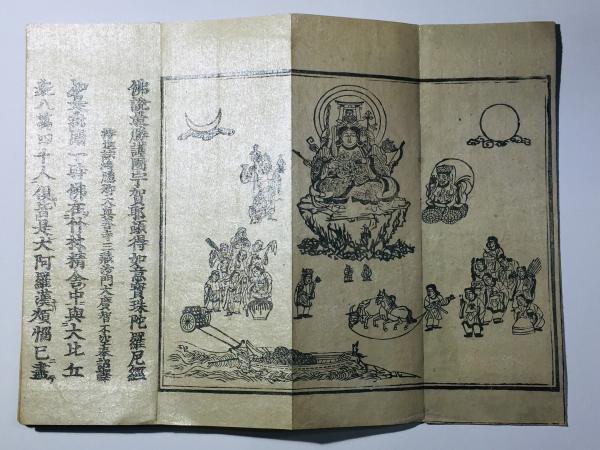 佛說最勝護國宇賀耶頓得如意寶珠陀羅尼經
特進試鴻臚卿大興善寺三藏沙門大廣智不空奉詔譯
如是我聞一時佛在竹林精舍中與大比丘
衆八萬四千人俱皆是大阿羅漢煩惱已盡